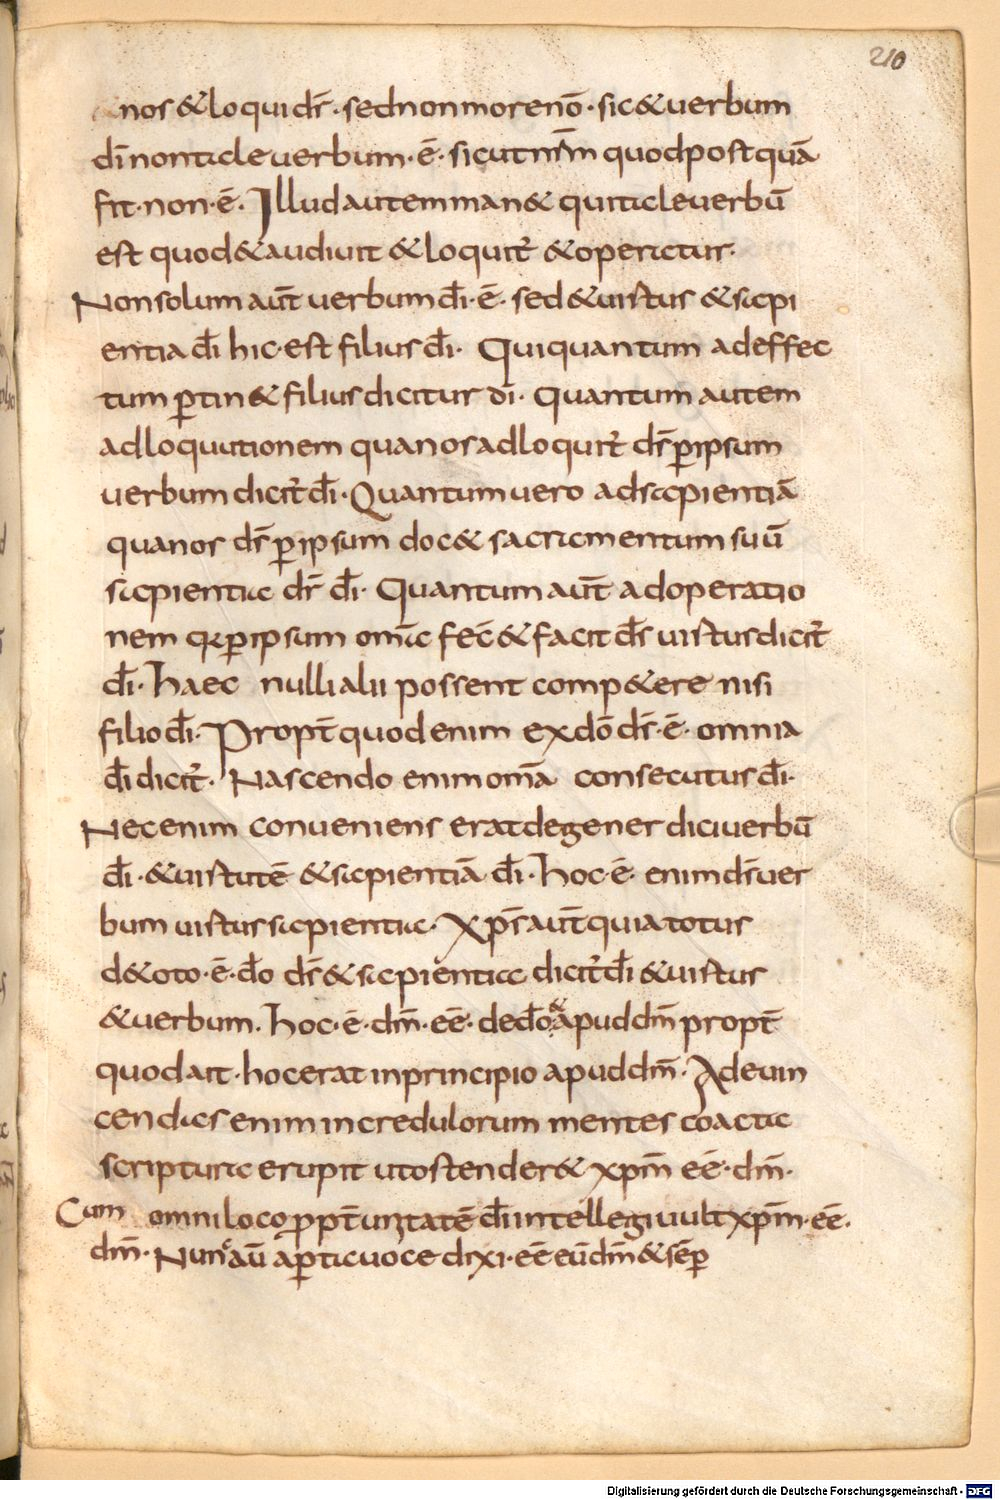 210
nos & loqui dr̄ · sed non more nō · sic & uerbum
dī non tale uerbum · ē · sicut nr̄m quod postquā
fit · non · ē · Illud autem man& qui tale uerbū
est quod & audiuit & loquit̄ & operatur ·
Non solum aūt uerbum dī · ē · sed & uirtus & sapi
entia dī hic · est filius dī · Qui quantum ad effec
tum ꝑtin& filius dicitur dī · Quantum autem
ad loquutionem qua nos adloquit̄ dr̄ ꝑ ipsum
uerbum dicit̄ dī · Quantum uero ad sapientiā
qua nos dr̄ ꝑ ipsum doc& sacramentum suū
sapientiae dr̄ dī · Quantum aūt ad operatio
nem ꝑ ipsum omīa fec̄ & facit dr̄ uirtus dicit̄
dī · haec nulli alii possent comp&ere nisi
filio dī · Propt̄ quod enim ex dō dr̄ · ē · omnia
dī dicit̄ · Nascendo enim omīa consecutus dī ·
Nec enim conueniens erat degener dici uerbū
dī · & uirtutē & sapientiā dī · hoc · ē · enim dr̄ uer
bum uirtus sapientiae · xpr̄ aūt quia totus
d& oto · ē · dō dr̄ & sapientia dicit̄ dī & uirtus
& uerbum · hoc · ē · dm̄ · eē · de dō & apud dm̄ propt̄
quod ait · hoc erat in principio apud dm̄ · Ad euin
cendas enim incredulorum mentes coactae
scripturae erupit ut ostender& xpm̄ eē · dm̄ ·
Cum omni loco ꝑpt̄ unitatē dī intellegi uult xpm̄ · eē ·
dm̄ · Nunc aū aꝑta uoce dixi · eē eū dm̄ & sēꝑ
Digitalisierung gefördert durch die Deutsche Forschungsgemeinschaft - DFG